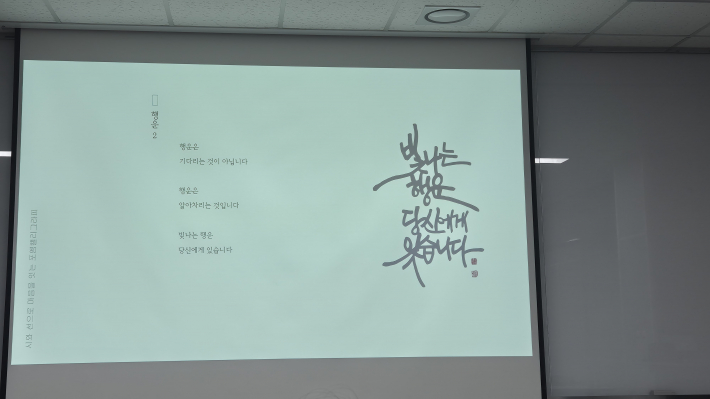 행운 2
행운은
기다리는 것이 아닙니다
행운은
알아차리는 것입니다
빛나는 행운
당신에게 있습니다
빛나는
행운
당신에게
있습니다